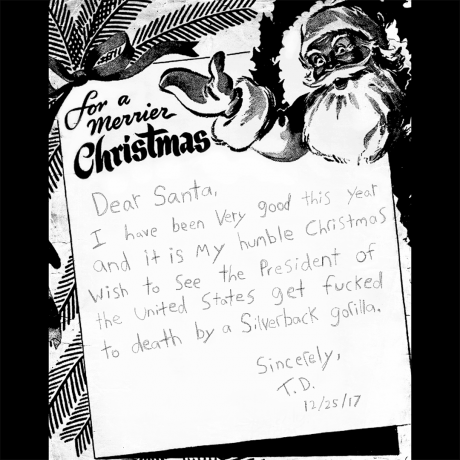 for a
merrier
Christmas
Dear Santa,
I have been Very good this year
and it is My humble Christmas
wish to See the President of
the United States get fucked
to death by a Silverback gorilla.
Sincerely,
T.D.
12/25/17